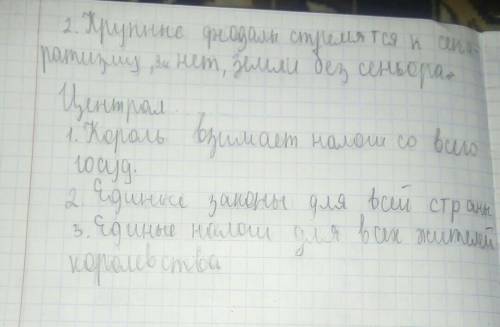 2. Крупные феодалы стремятся к сепа-
ратизму, "нет, земли без сеньора"
Централ.
1. Король взимает налоги со всего
госуд.
2. Единые законы для всей страны
3. Единые налоги для всех жителей
королевства